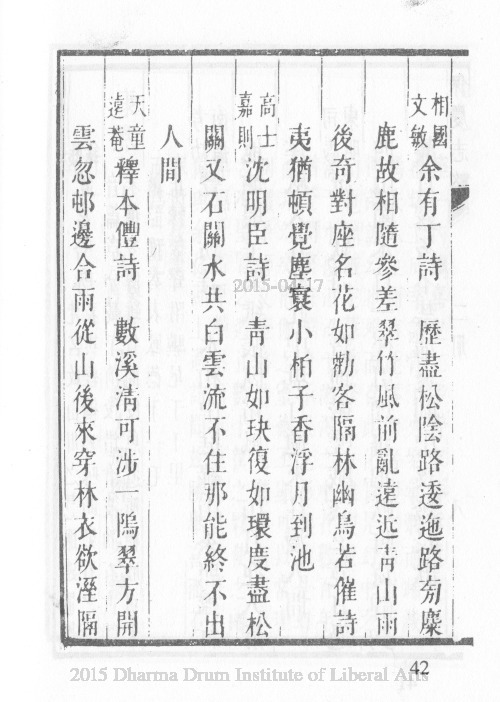 相國文敏余有丁詩　歷盡松陰路逶迤路旁麋
鹿故相隨參差翠竹風前亂遠近青山雨
後奇對座名花如勸客隔林幽鳥若催詩
夷猶頓覺塵寰小柏子香浮月到池
高士嘉則沈明臣詩　青山如玦復如環度盡松
關又石關水共白雲流不住那能終不出
人間
天童遠菴釋本僼詩　數溪清可涉一塢翠方開
雲忽邨邊合雨從山後來穿林衣欲溼隔
2015-04-17
42
2015 Dharma Drum Institute of Liberal Arts